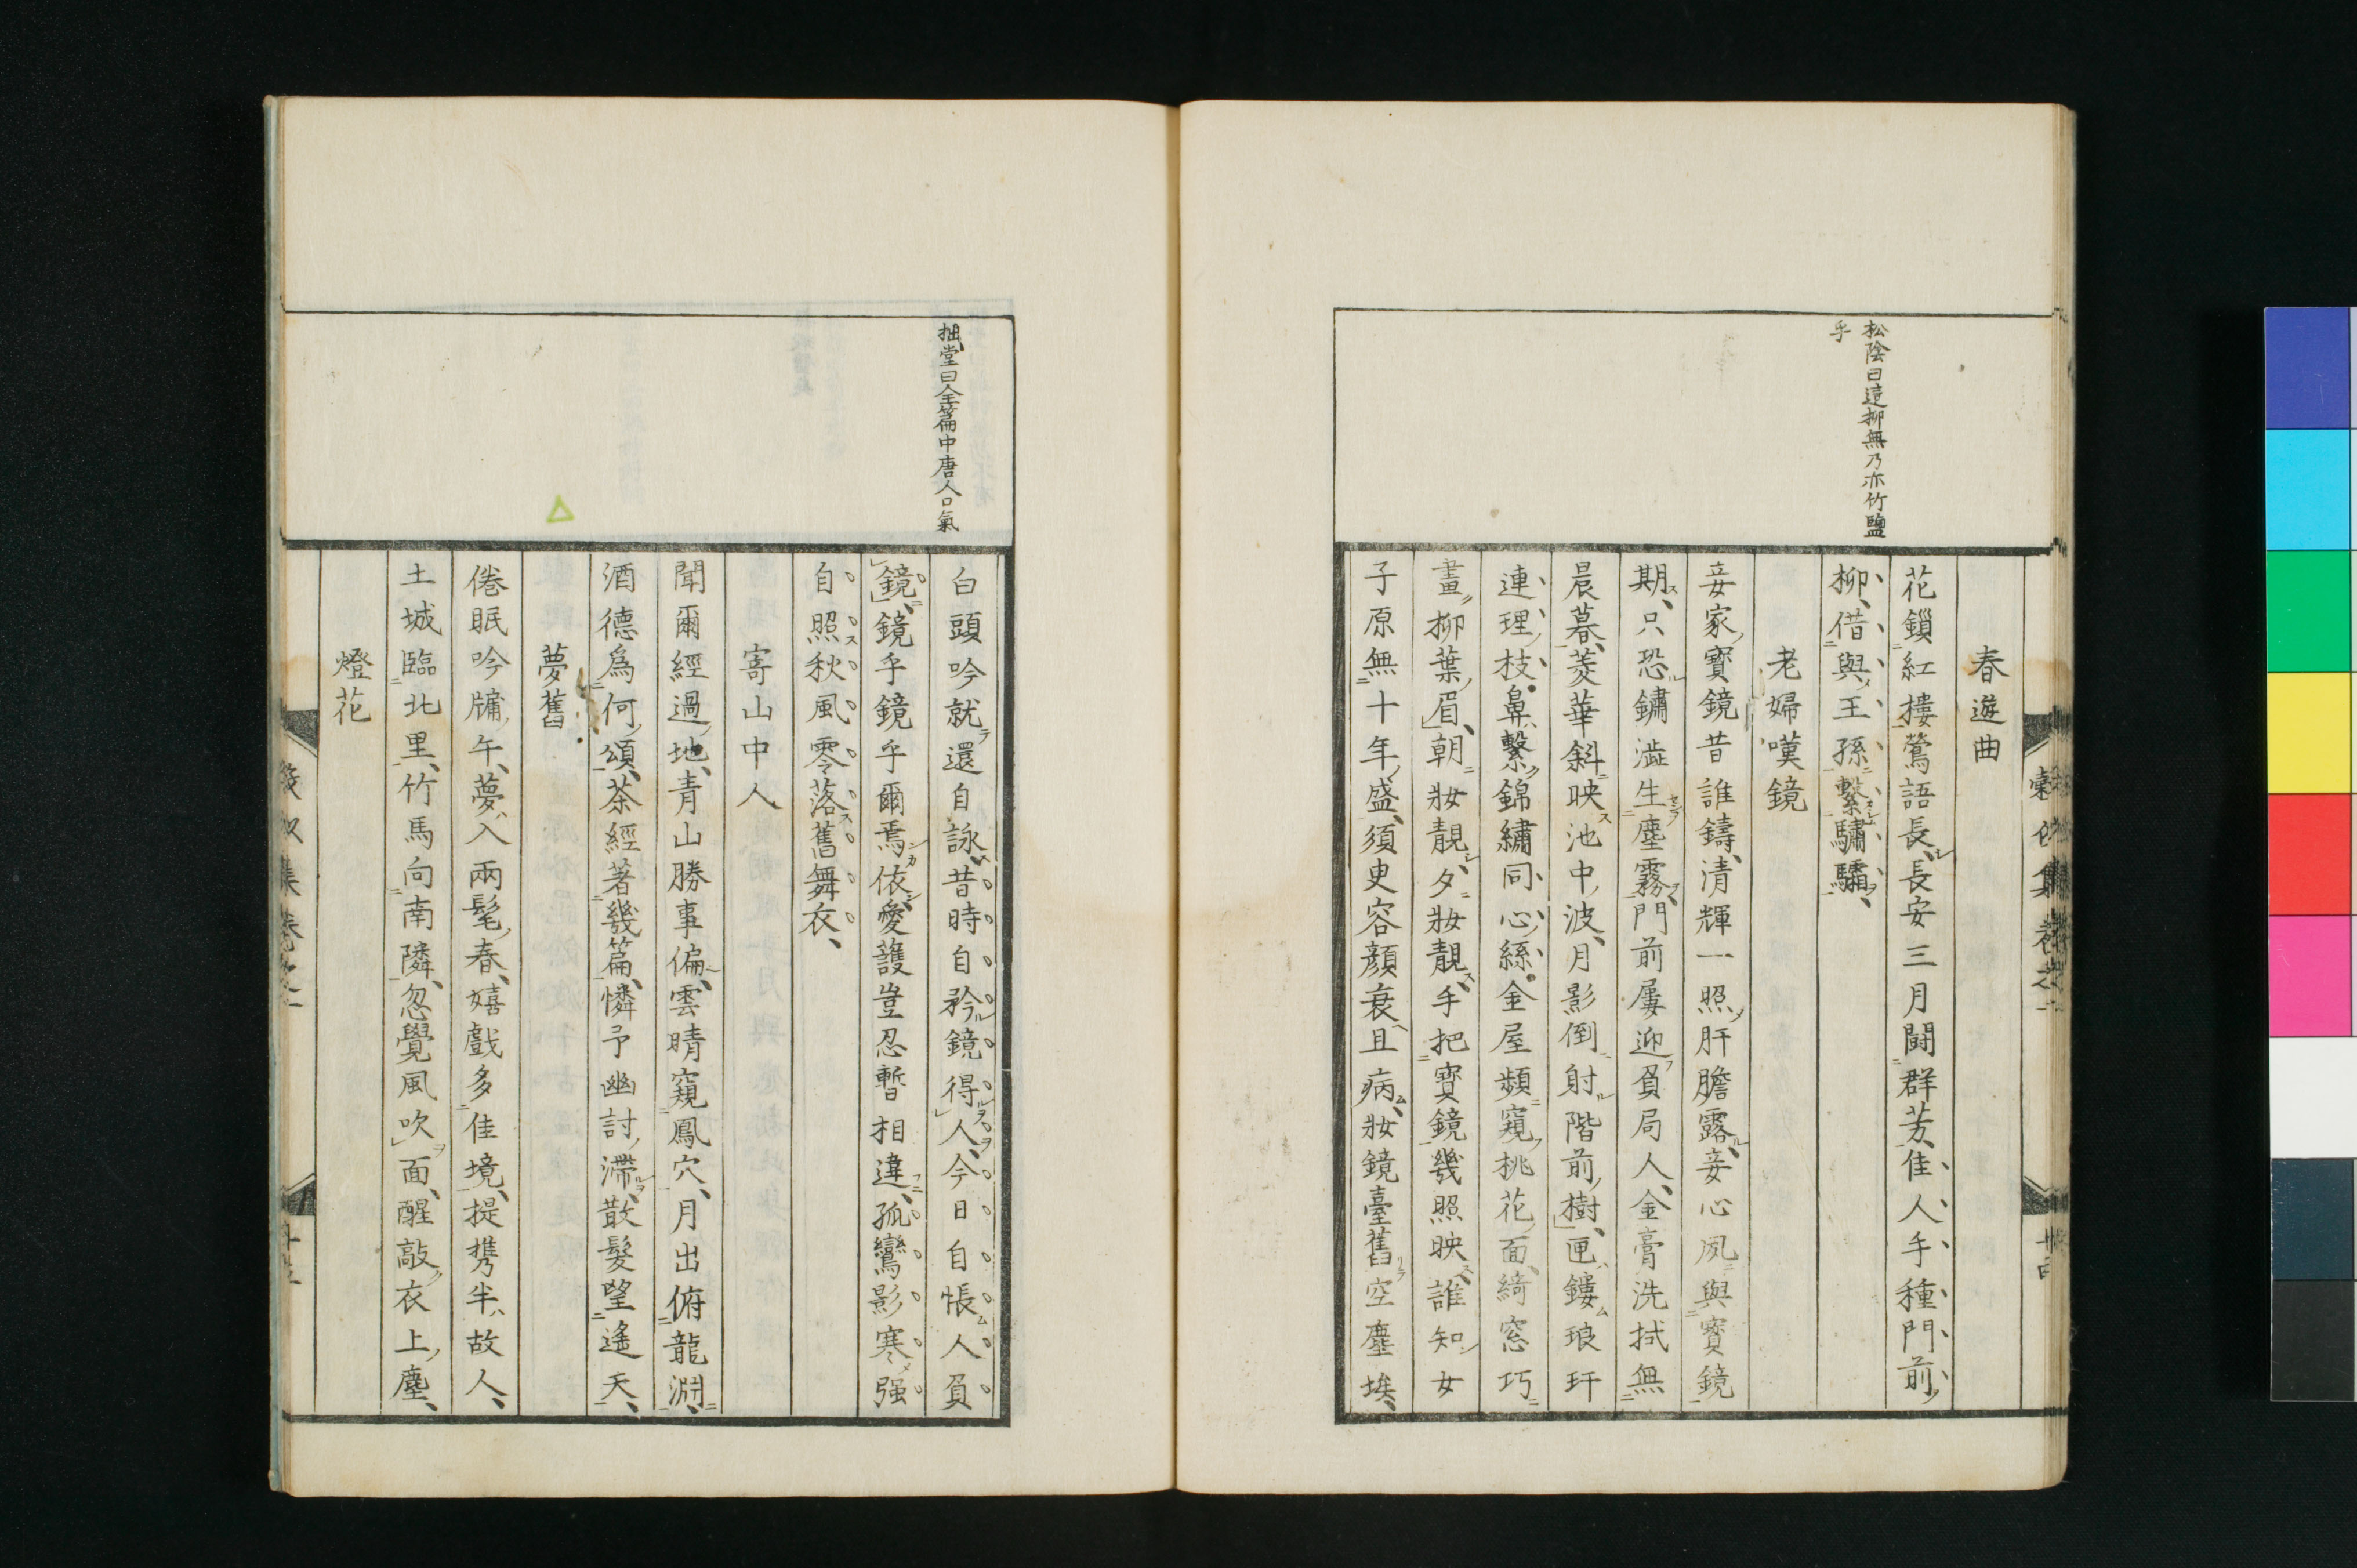 松陰曰這柳無乃亦竹鹽
乎
春遊曲
花鎻紅樓鶯語長長安三月鬪群芳佳人手種門前
柳借與王孫繫驌驦
老婦嘆鏡
妾家寶鏡昔誰鑄清輝一照肝膽露妾心夙與寶鏡
期只恐鏽澁生塵霧門前屢迎負局人金膏洗拭無
晨暮菱華斜映池中波月影倒射階前樹匣鏤琅玕
連理枝鼻繫錦繡同心絲金屋頻窺桃花面綺窓巧
畫柳葉眉朝妝靚夕妝靚手把寶鏡幾照映誰知女
子原無十年盛須臾容顔衰且病妝鏡臺舊空塵埃
拙堂曰全篇中唐人口氣
白頭吟就還自詠昔時自矜鏡得人今日自悵人負
鏡鏡乎鏡乎爾焉依愛護豈忍暫相違孤鸞影寒强
自照秋風零落舊舞衣
寄山中人
聞爾經過地青山勝事偏雲晴窺鳳穴月出俯龍淵
酒德爲何頌茶經著幾篇憐予幽討滯散髮望遙天
夢舊
倦眠吟牗午夢入兩髦春嬉戲多佳境提携半故人
土城臨北里竹馬向南隣忽覺風吹面醒敲衣上塵
燈花